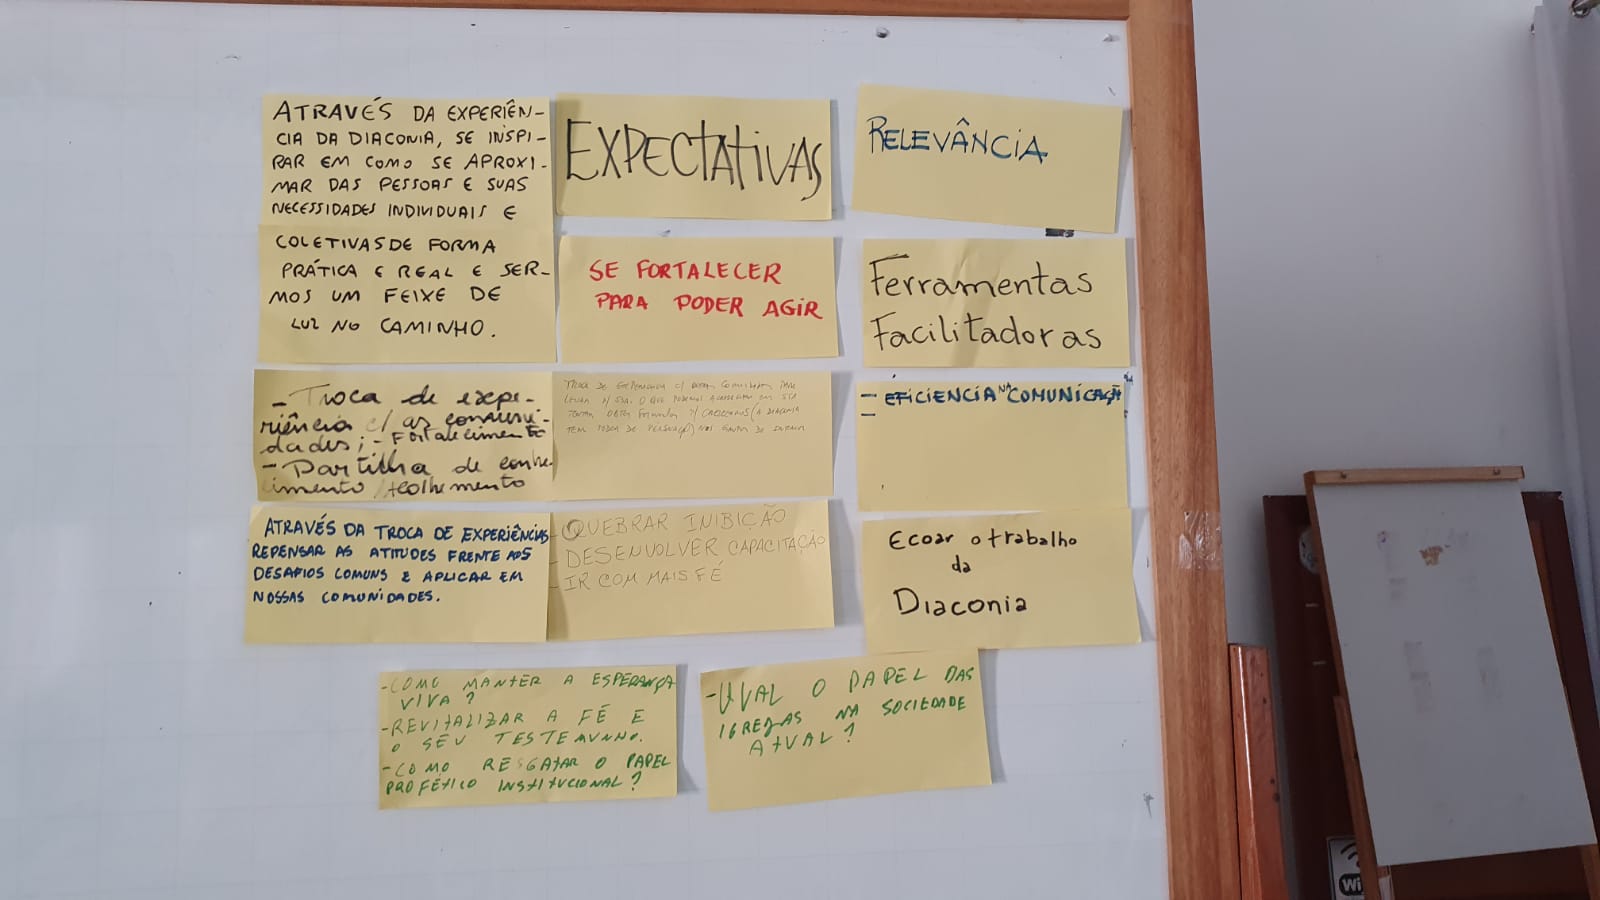 ATRAVÉS DA EXPERIÊN-
CIA DA DIACONIA, SE INSPI-
RAR EM COMO SE APROXI-
MAR DAS PESSOAS E SUAS
NECESSIDADES INDIVIDUAIS E
COLETIVAS DE FORMA
PRÁTICA E REAL E SER-
MOS UM FEIXE DE
LUZ NO CAMINHO.
EXPECTATIVAS
RELEVÂNCIA
SE FORTALECER
PARA PODER AGIR
Ferramentas
Facilitadoras
- Troca de expe-
riência c/ as comuni-
dades; - Fortalecimento
- Partilha de conhe-
cimento / Acolhimento
TROCA DE EXPERIENCIA C/ OUTRAS COMUNIDADES PARA
LEVAR P/ SUA. O QUE PODEMOS ACRESCENTAR EM SUA
(A DIACONIA
TEM PODER DE PERSUAÇÃO)
- EFICIENCIA NA COMUNICAÇÃO
-
ATRAVÉS DA TROCA DE EXPERIÊNCIAS
REPENSAR AS ATITUDES FRENTE AOS
DESAFIOS COMUNS E APLICAR EM
NOSSAS COMUNIDADES.
- QUEBRAR INIBIÇÃO
- DESENVOLVER CAPACITAÇÃO
- IR COM MAIS FÉ
Ecoar o trabalho
da
Diaconia
- COMO MANTER A ESPERANÇA
VIVA?
- REVITALIZAR A FÉ E
O SEU TESTEMUNHO.
- COMO RESGATAR O PAPEL
PROFÉTICO INSTITUCIONAL?
- QUAL O PAPEL DAS
IGREJAS NA SOCIEDADE
ATUAL?
Wi